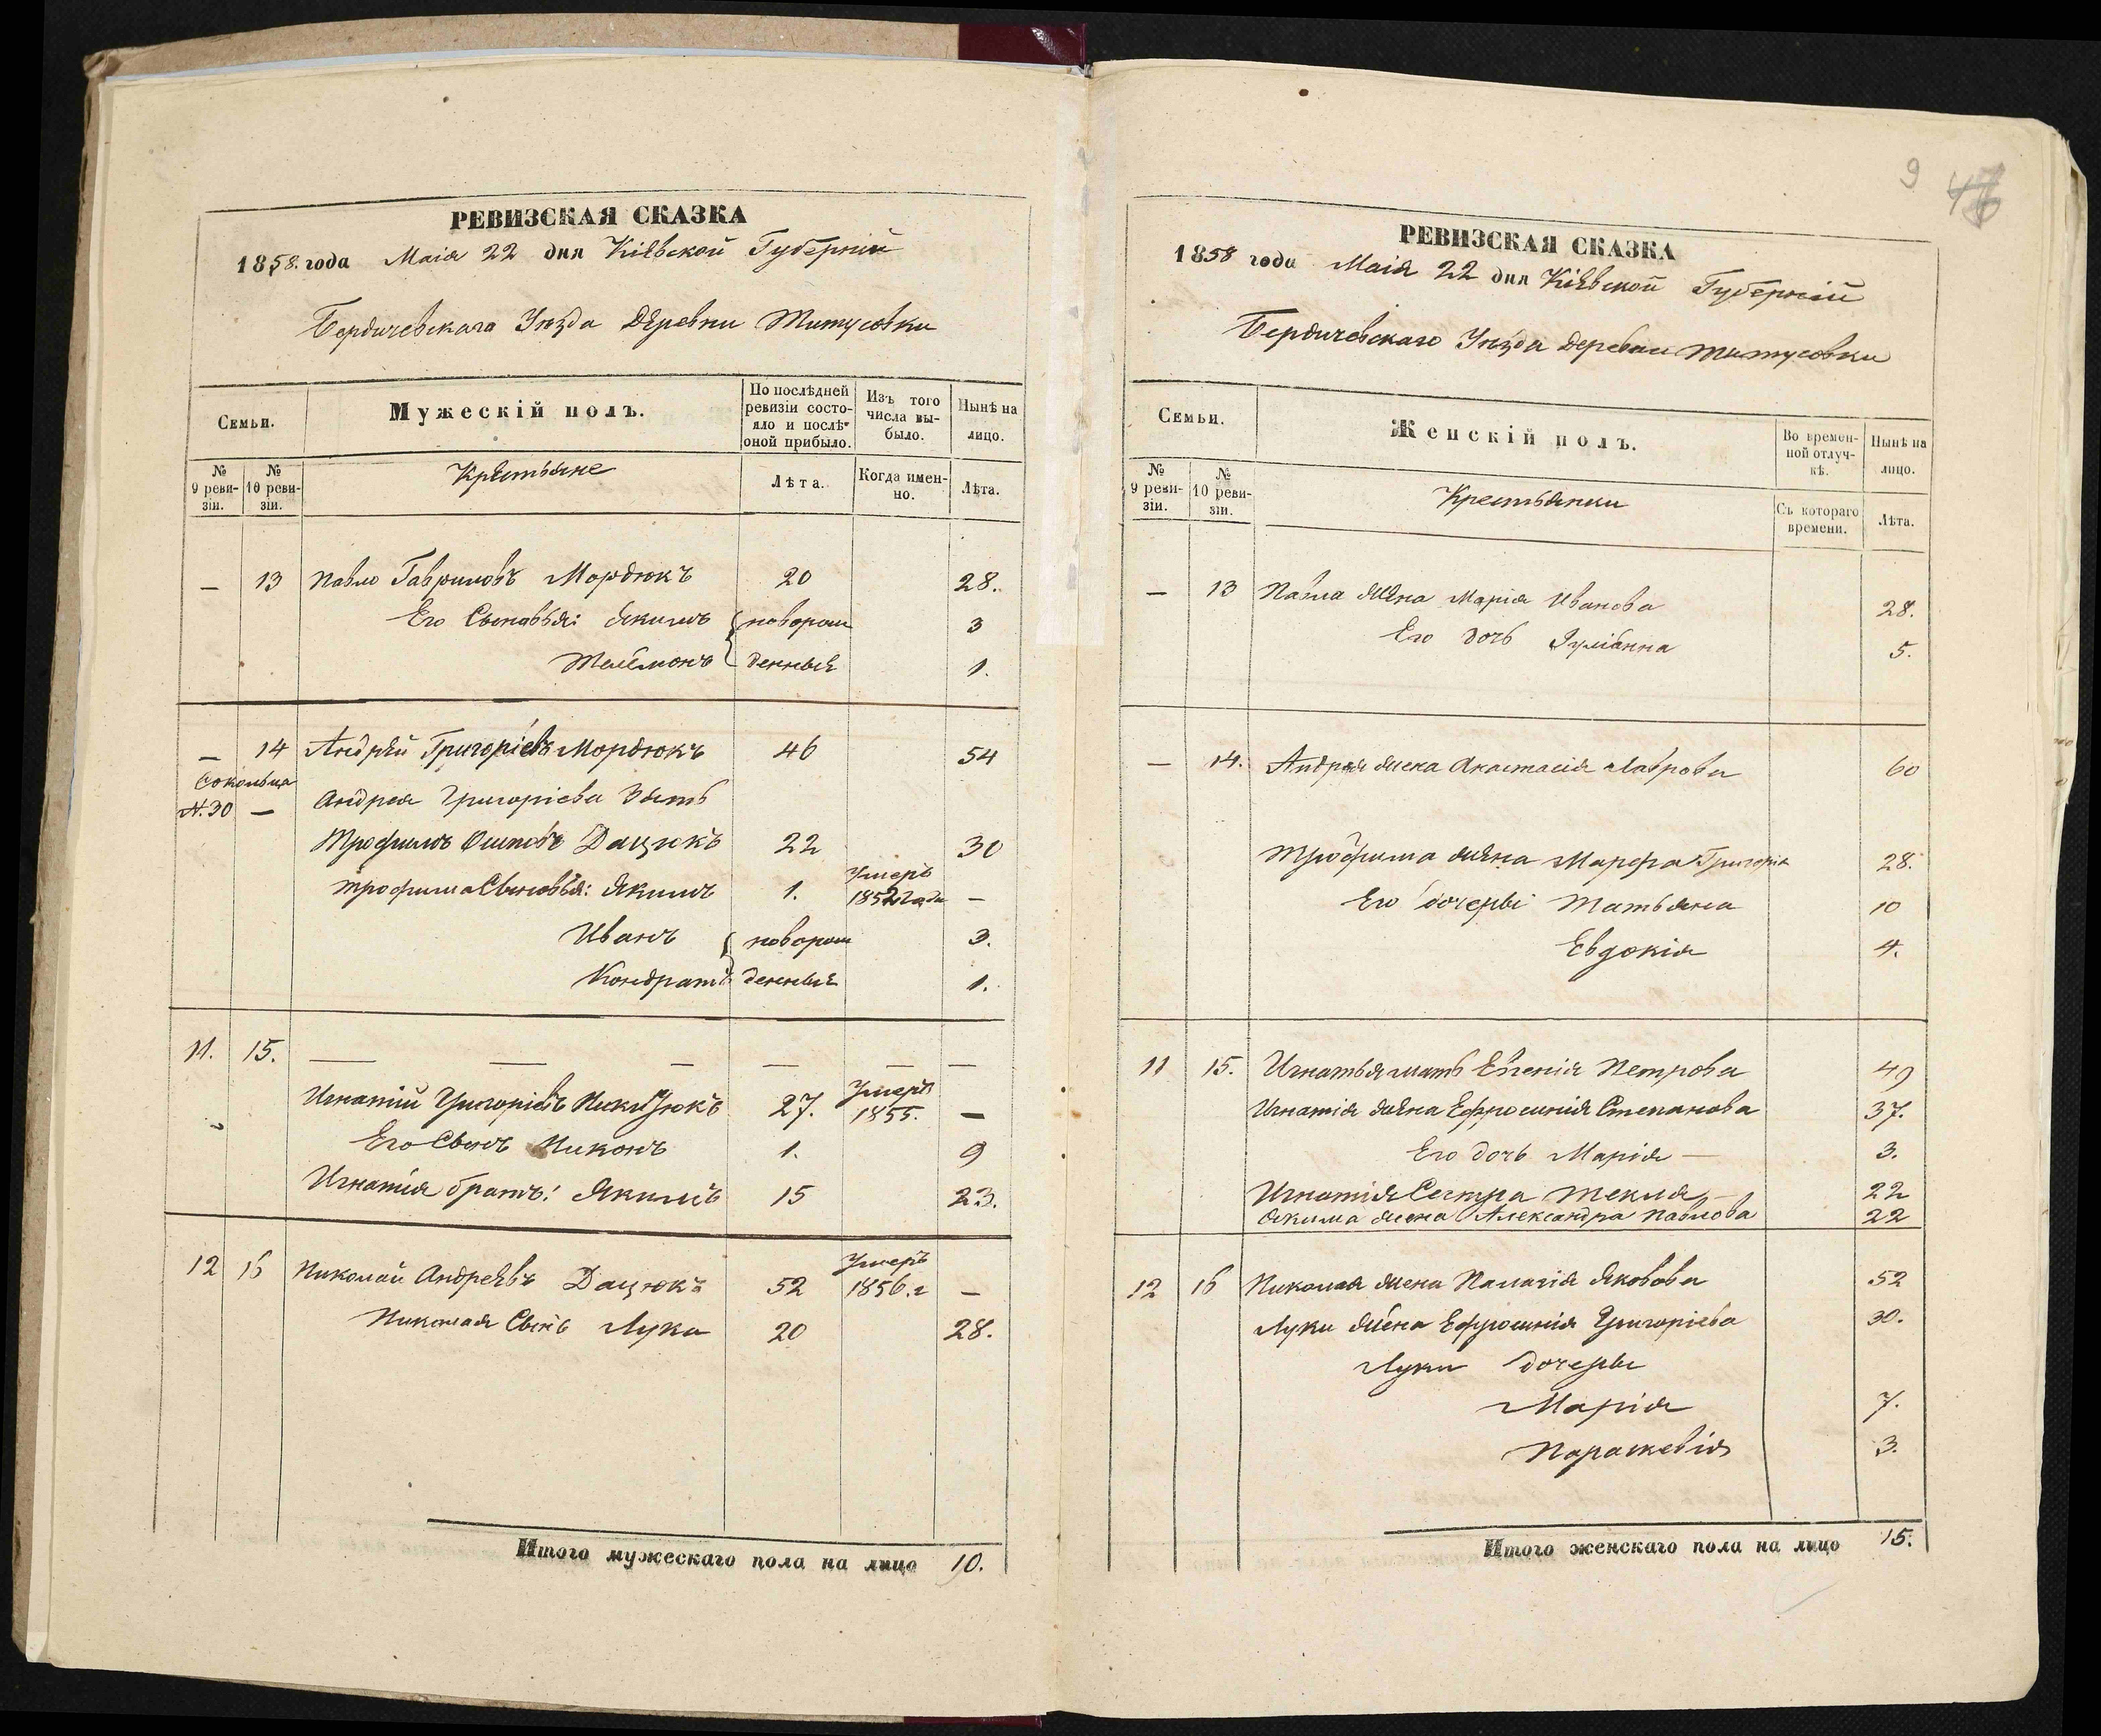 РЕВИЗСКАЯ СКАЗКА
1858. года Маія 22 дня Кіевской Губерніи
Бердичевскаго Уѣзда Деревни Титусовки
Семьи.
Мужескій полъ.
По послѣдней ревизіи состояло и послѣ оной прибыло.
Изъ того числа выбыло.
Нынѣ на лицо.
№ 9 ревизіи.
№ 10 ревизіи.
Крестьяне
Лѣта.
Когда именно.
Лѣта.
— 13 Павло Гавриловъ Мордюкъ 20 28.
Его Сыновья: Якимъ новорож 3
Тилимонъ денные 1.
— 14 Андрей Григоріевъ Мордюкъ 46 54
Сокольца
№.30 — Андрея Григоріева Зять
Трофимъ Осиповъ Дацюкъ 22 30
Трофима Сыновья: Якимъ 1. Умеръ 1852 года —
Иванъ новорож 3.
Кондратъ денные 1.
11. 15. — — — — — —
Игнатій Григоріевъ Никитюкъ 27. Умеръ 1855. —
Его Сынъ Никонъ 1. 9
Игнатія братъ: Якимъ 15 23.
12 16 Николай Андреевъ Дацюкъ 52 Умеръ 1856.г —
Николая Сынъ Лука 20 28.
Итого мужескаго пола на лицо 10.
9
РЕВИЗСКАЯ СКАЗКА
1858 года Маія 22 дня Кіевской Губерніи
Бердичевскаго Уѣзда Деревни Титусовки
Семьи.
Женскій полъ.
Во временной отлучкѣ.
Нынѣ на лицо.
№ 9 ревизіи.
№ 10 ревизіи.
Крестьянки
Съ котораго времени.
Лѣта.
— 13 Павла жена Марія Иванова 28.
Его дочь Іуліанна 5.
— 14. Андрея жена Анастасія Лаврова 60
Трофима жена Марфа Григорія 28.
Его дочери Татьяна 10
Евдокія 4.
11 15. Игнатья мать Евгенія Петрова 49
Игнатія жена Ефросинія Степанова 37.
Его дочь Марія — 3.
Игнатія Сестра Текля — 22
Якима жена Александра Павлова 22
12 16 Николая жена Палагія Яковова 52
Луки жена Ефросинія Григоріева 30.
Луки дочеры
Марія 7.
Параскевія 3.
Итого женскаго пола на лицо 15.